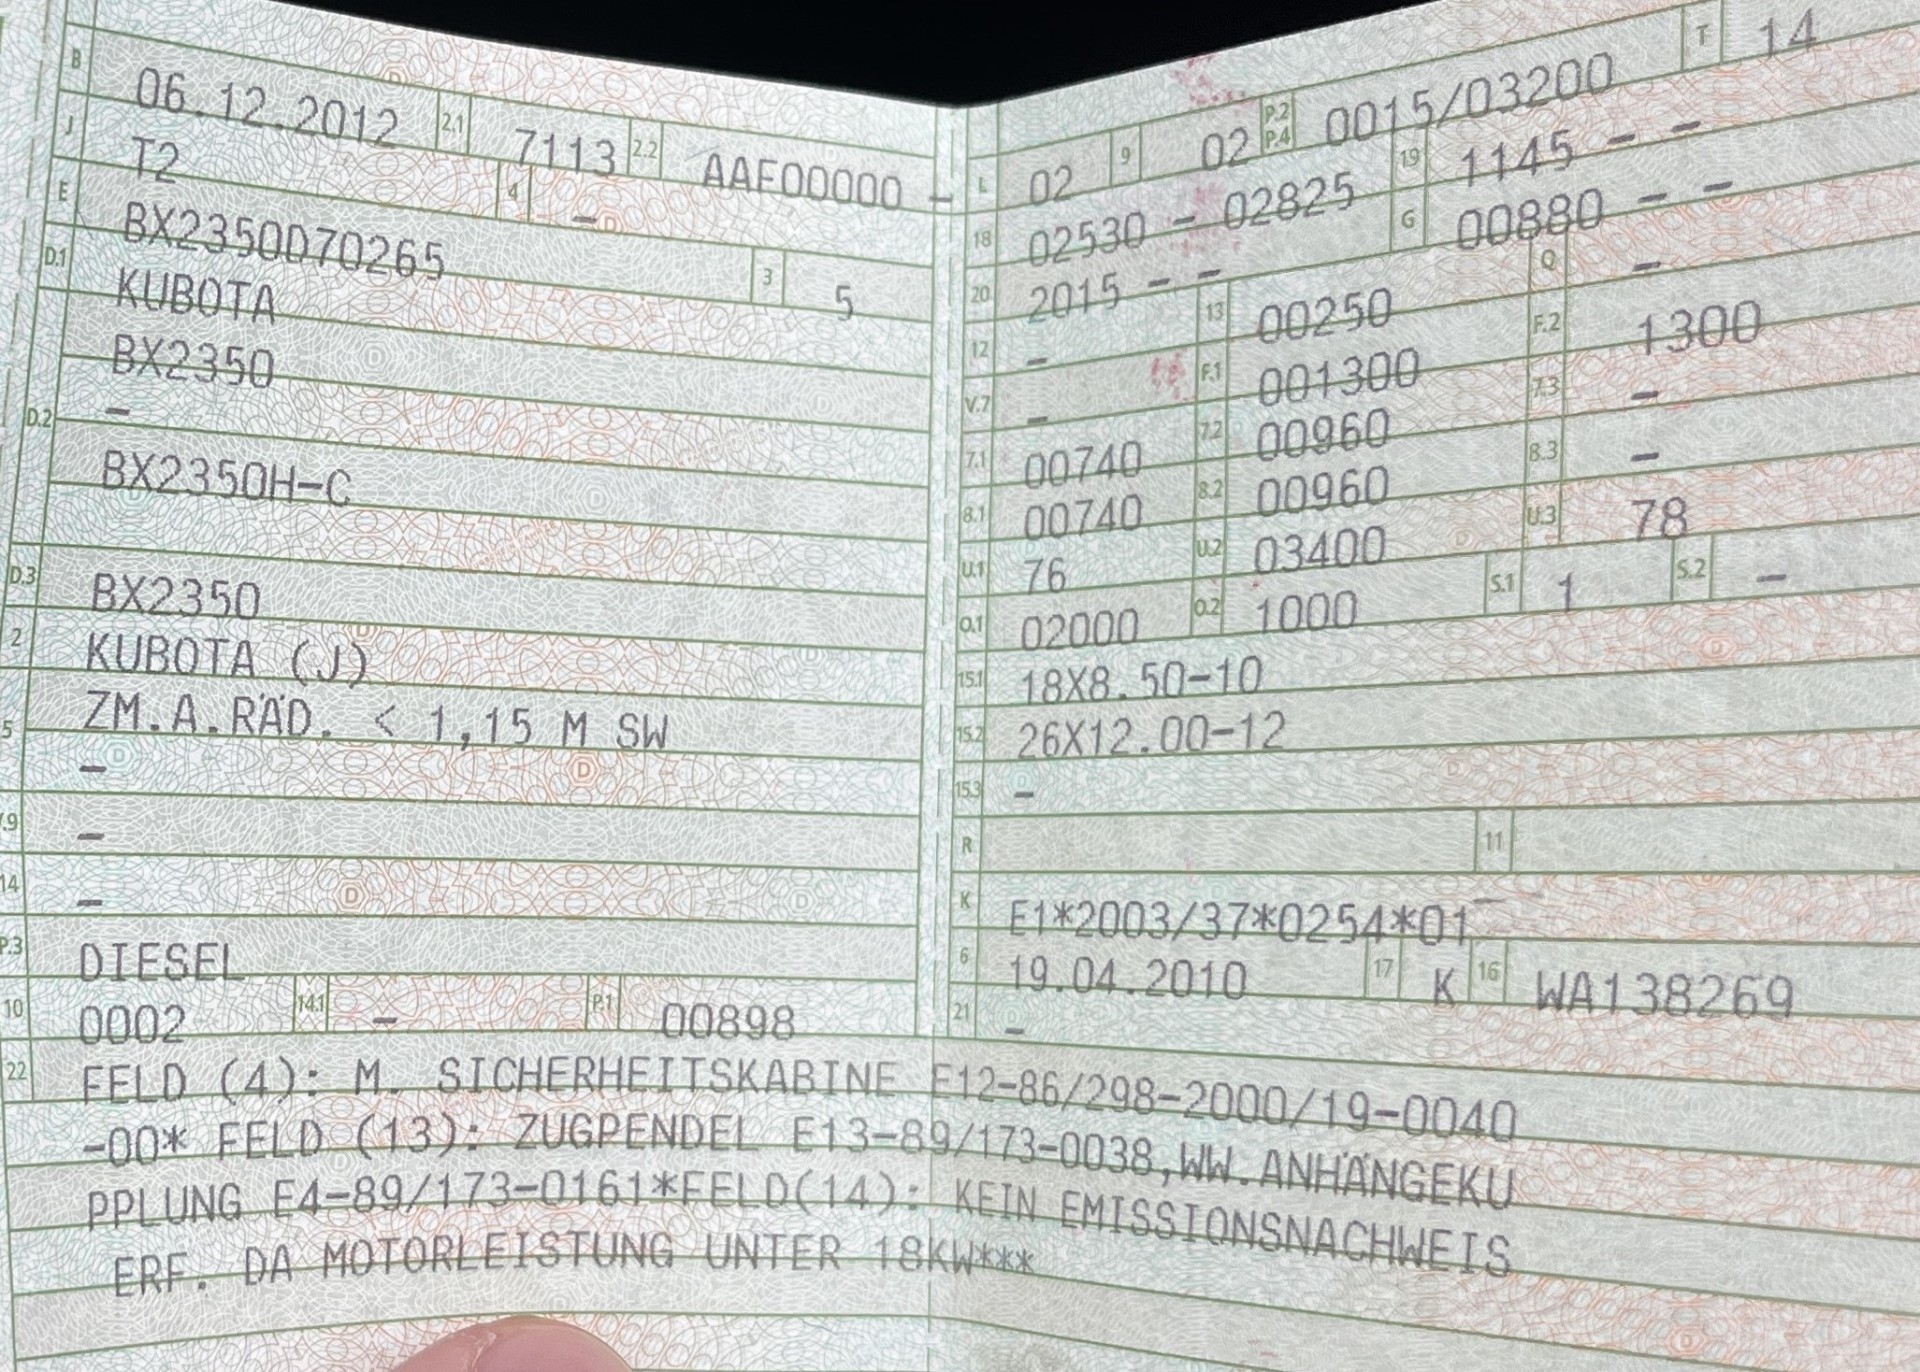 B 06.12.2012 2.1 7113 2.2 AAF00000 -
J T2 4 -
E BX2350D70265 3 5
D.1 KUBOTA
BX2350
D.2 -
BX2350H-C
D.3 BX2350
2 KUBOTA (J)
5 ZM.A.RÄD. < 1,15 M SW
-
V.9 -
14 -
P.3 DIESEL
10 0002 14.1 - P.1 00898
L 02 9 02 P.2 P.4 0015/03200 T 14
18 02530 - 02825 19 1145 - -
20 2015 - - G 00880 - -
12 - 13 00250 Q -
V.7 - F.1 001300 F.2 1300
7.1 00740 7.2 00960 7.3 -
8.1 00740 8.2 00960 8.3 -
U.1 76 U.2 03400 U.3 78
O.1 02000 O.2 1000 S.1 1 S.2 -
15.1 18X8.50-10
15.2 26X12.00-12
15.3 -
R 11
K E1*2003/37*0254*01
6 19.04.2010 17 K 16 WA138269
21 -
22 FELD (4): M. SICHERHEITSKABINE E12-86/298-2000/19-0040
-00* FELD (13): ZUGPENDEL E13-89/173-0038,WW.ANHÄNGEKU
PPLUNG E4-89/173-0161*FELD(14): KEIN EMISSIONSNACHWEIS
ERF. DA MOTORLEISTUNG UNTER 18KW***